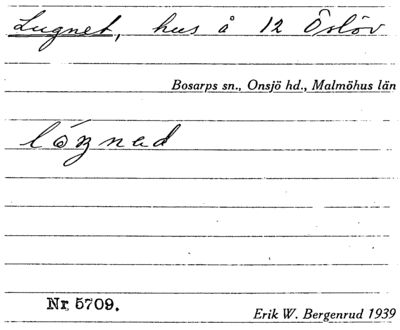 Lugnet, hus å 12 Öslöv
Bosarps sn., Onsjö hd., Malmöhus län
Nr. 5709.
Erik W. Bergenrud 1939